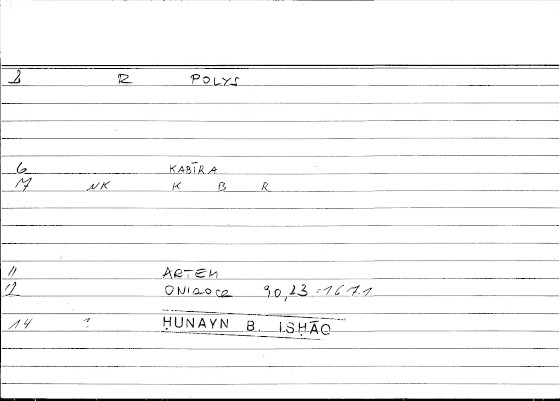 2 R POLYS
6 KABĪRA
17 NK K B R
11 ARTEM
12 ONIROCR 90,23=167.1
14 ? ḤUNAYN B. ISḤĀQ